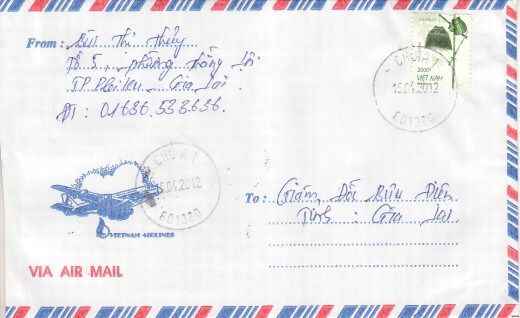 From : Bùi Thị Thủy
Tổ 5, phường Thống Nhất
TP. Pleiku - Gia Lai
ĐT : 01686.538.686
2000đ
VIỆT NAM
CHƯ A 1
15.04.2012
601380
CHƯ A 1
15.04.2012
601380
VIETNAM AIRLINES
To : Giám Đốc Bưu Điện
Tỉnh : Gia Lai
VIA AIR MAIL